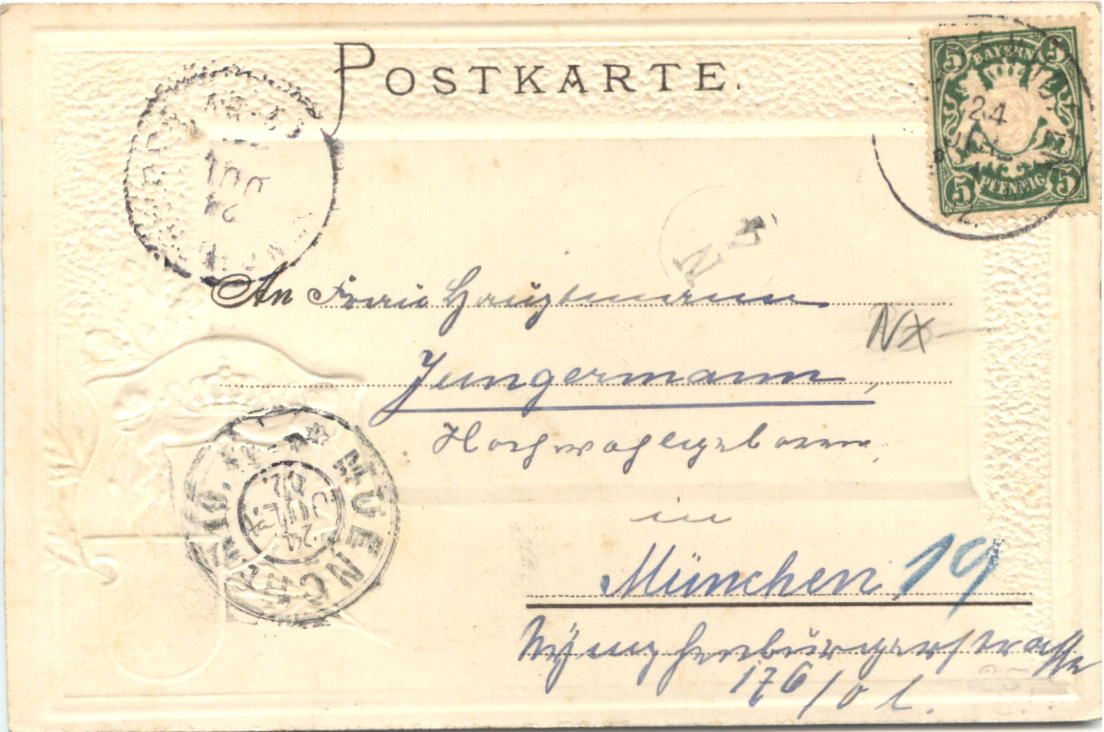 POSTKARTE.
5 BAYERN 5
5 PFENNIG 5
24
JUL
24
JUL
4
N
An Frau Hauptmann
NX
Jungermann,
Hochwohlgeboren,
in
München, 19
Nymphenburgerstrasse
176/0 l.
MUENCHEN
24
JUL
02